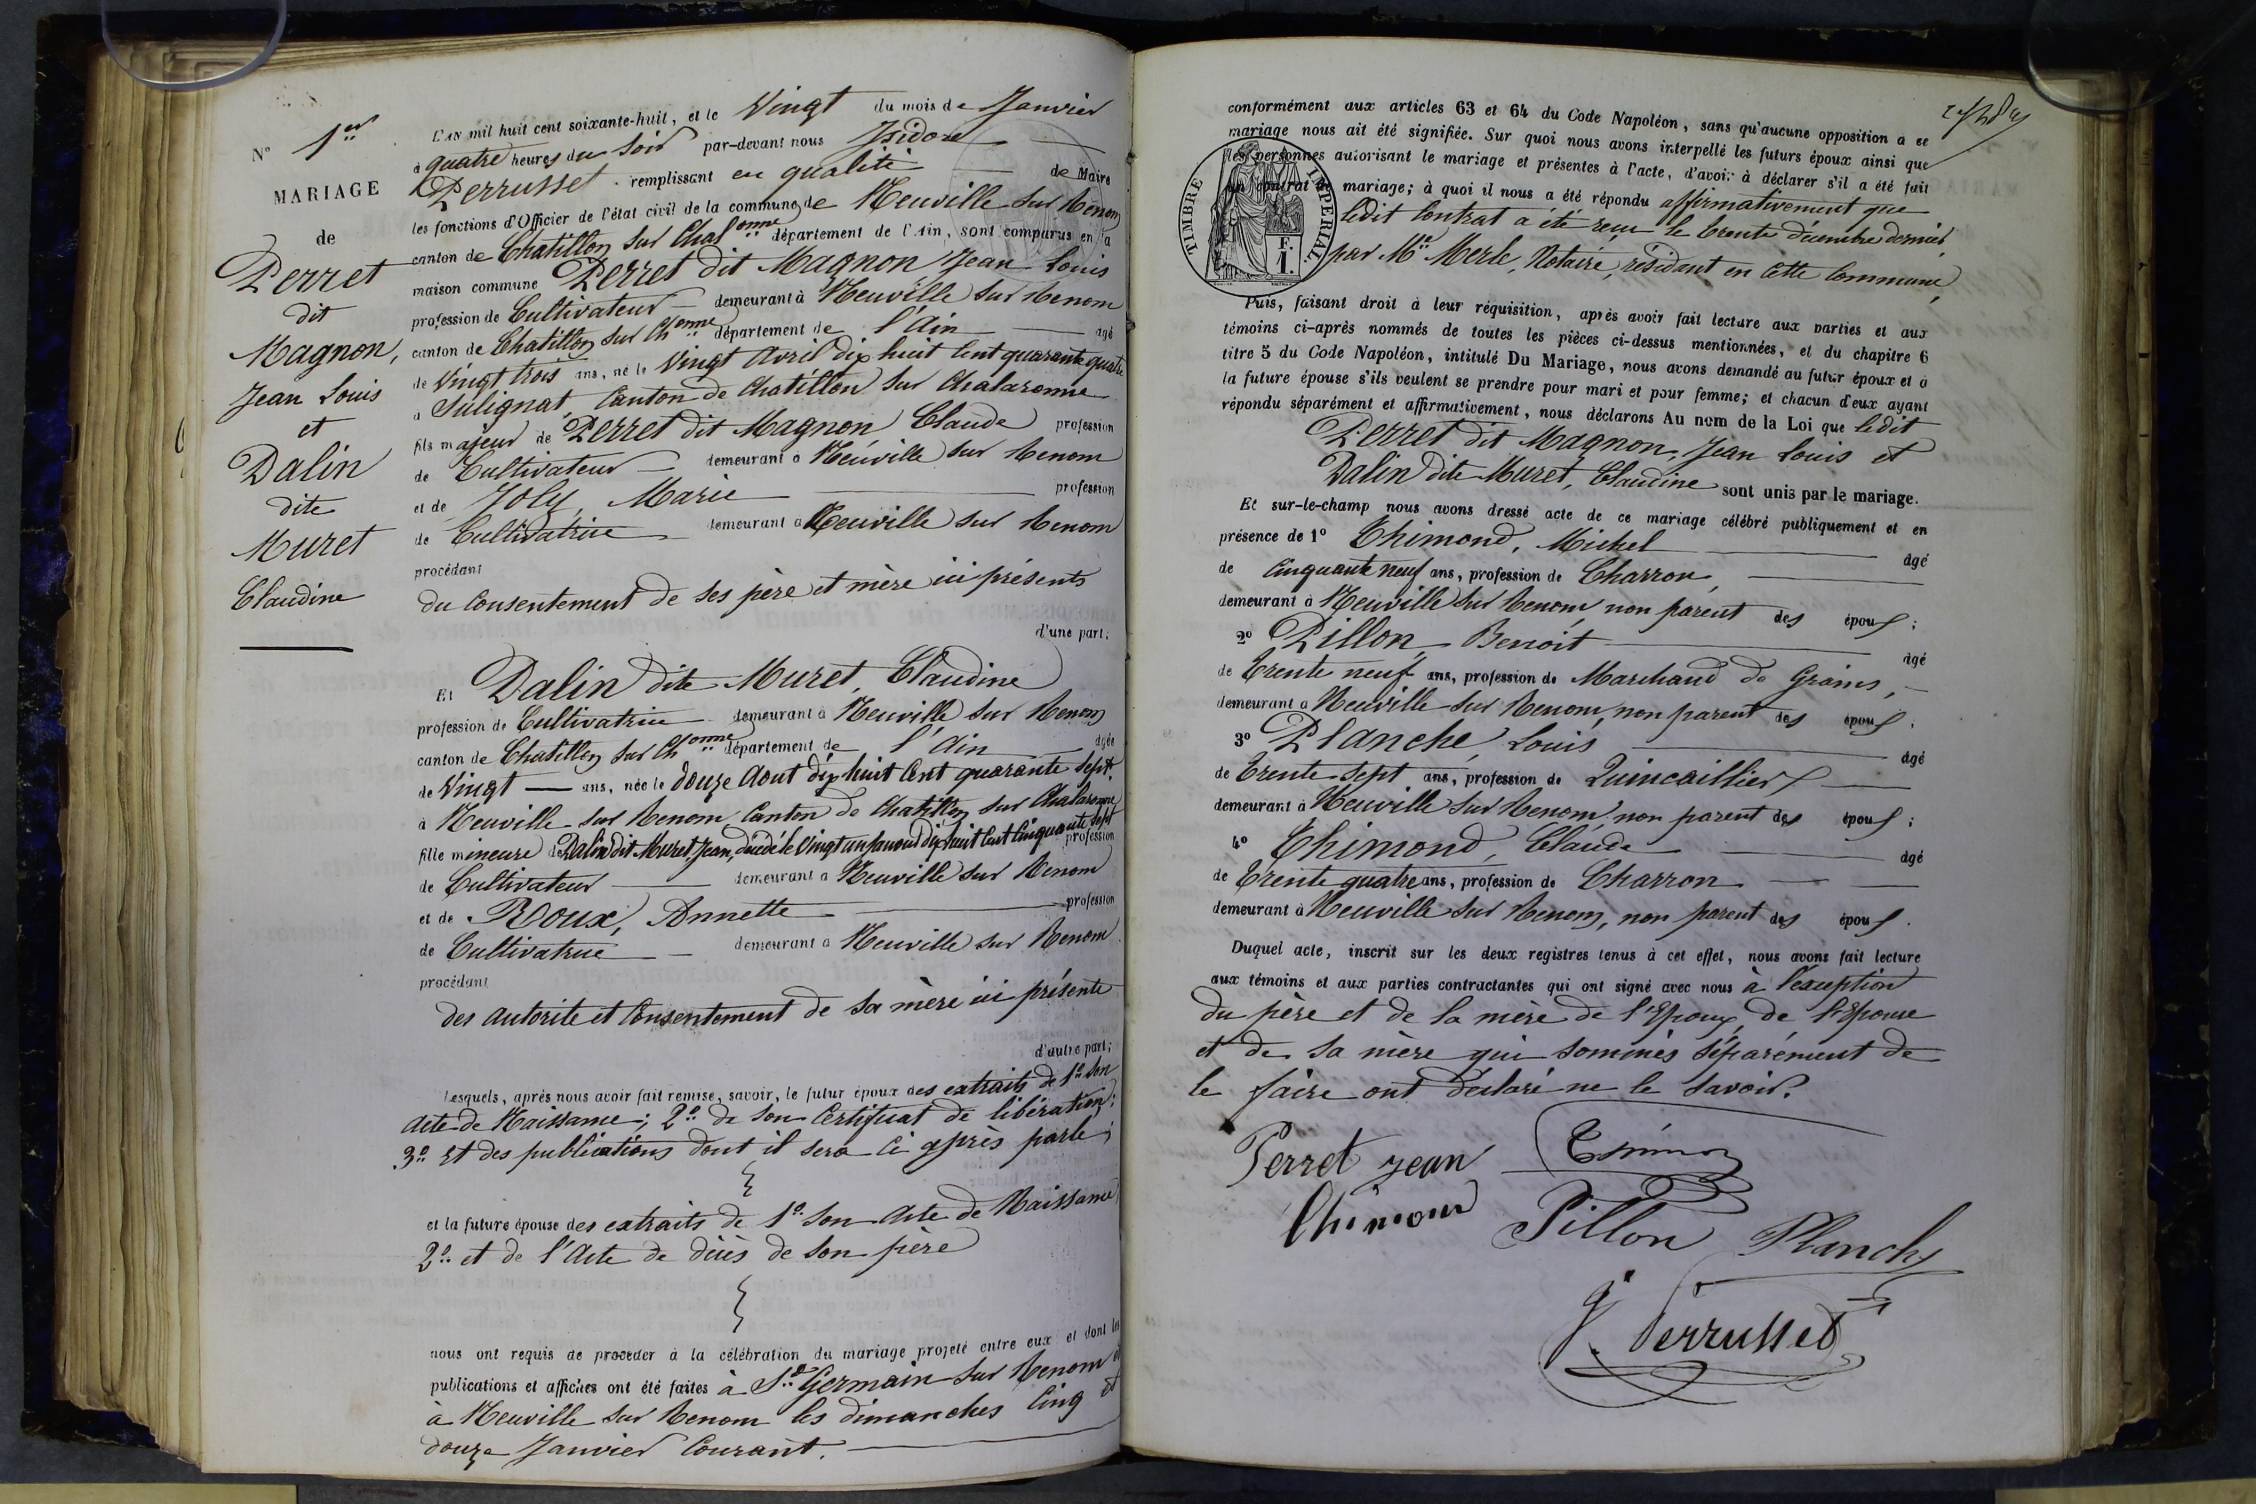 N° 1er
MARIAGE
de
Perret
dit
Magnon,
Jean Louis
et
Dalin
dite
Muret
Claudine
L'AN mil huit cent soixante-huit, et le Vingt du mois de Janvier
à quatre heures du Soir par-devant nous Isidore
Perrusset remplissant en qualité de Maire
les fonctions d'Officier de l'état civil de la commune de Neuville sur Renom
canton de Chatillon sur Chalonne département de l'Ain, sont comparus en la
maison commune Perret dit Magnon Jean Louis
profession de Cultivateur demeurant à Neuville sur Renom
canton de Chatillon sur Chonne département de l'Ain âgé
de Vingt trois ans, né le Vingt Avril dix huit Cent quarante quatre
à Sulignat, Canton de Chatillon sur Chalaronne
fils majeur de Perret dit Magnon Claude profession
de Cultivateur demeurant à Neuville sur Renom
et de Joly, Marie profession
de Cultivatrice demeurant à Neuville sur Renom
procédant
du Consentement de ses père et mère ici présents
d'une part;
Et Dalin dite Muret, Claudine
profession de Cultivatrice demeurant à Neuville sur Renom
canton de Chatillon sur Chonne département de l'Ain âgée
de Vingt ans, née le douze Aout dix huit Cent quarante sept
à Neuville sur Renom Canton de Chatillon sur Chalaronne
fille mineure de Dalin dit Muret, Jean, décédé le Vingt un Janvier dix huit Cent Cinquante sept profession
de Cultivateur demeurant à Neuville sur Renom
et de Roux, Annette profession
de Cultivatrice demeurant à Neuville sur Renom
procédant
des autorité et Consentement de sa mère ici présente
d'autre part;
Lesquels, après nous avoir fait remise, savoir, le futur époux des extraits de 1° Son
Acte de Naissance; 2° de son Certificat de libération;
3° Et des publications dont il sera Ci après parlé;
et la future épouse des extraits de 1° Son Acte de Naissance
2° et de l'Acte de décès de Son père
nous ont requis de procéder à la célébration du mariage projeté entre eux et dont les
publications et affiches ont été faites à St Germain sur Renom et
à Neuville sur Renom les dimanches Cinq et
douze Janvier Courant.
conformément aux articles 63 et 64 du Code Napoléon, sans qu'aucune opposition à ce
mariage nous ait été signifiée. Sur quoi nous avons interpellé les futurs époux ainsi que
les personnes autorisant le mariage et présentes à l'acte, d'avoir à déclarer s'il a été fait
un contrat de mariage; à quoi il nous a été répondu affirmativement que
TIMBRE IMPERIAL
F.
I.
ledit Contrat a été reçu le trente décembre dernier,
par Me Merle, Notaire, résidant en Cette Commune,
Puis, faisant droit à leur réquisition, après avoir fait lecture aux parties et aux
témoins ci-après nommés de toutes les pièces ci-dessus mentionnées, et du chapitre 6
titre 5 du Code Napoléon, intitulé Du Mariage, nous avons demandé au futur époux et à
la future épouse s'ils veulent se prendre pour mari et pour femme; et chacun d'eux ayant
répondu séparément et affirmativement, nous déclarons Au nom de la Loi que ledit
Perret dit Magnon, Jean Louis et
Dalin dite Muret, Claudine sont unis par le mariage.
Et sur-le-champ nous avons dressé acte de ce mariage célébré publiquement et en
présence de 1° Thimond, Michel âgé
de Cinquante neuf ans, profession de Charron,
demeurant à Neuville sur Renom, non parent des époux;
2° Pillon Benoit âgé
de trente neuf ans, profession de Marchand de Grains,
demeurant à Neuville sur Renom, non parent des époux;
3° Planche Louis âgé
de trente sept ans, profession de Quincaillier
demeurant à Neuville sur Renom, non parent des époux;
4° Thimond, Claude âgé
de trente quatre ans, profession de Charron
demeurant à Neuville sur Renom, non parent des époux.
Duquel acte, inscrit sur les deux registres tenus à cet effet, nous avons fait lecture
aux témoins et aux parties contractantes qui ont signé avec nous à l'exception
du père et de la mère de l'Epoux, de l'Epouse
et de sa mère qui sommés séparément de
le faire ont déclaré ne le savoir.
Perret Jean
Thimond
Pillon Planche
J. Perrusset